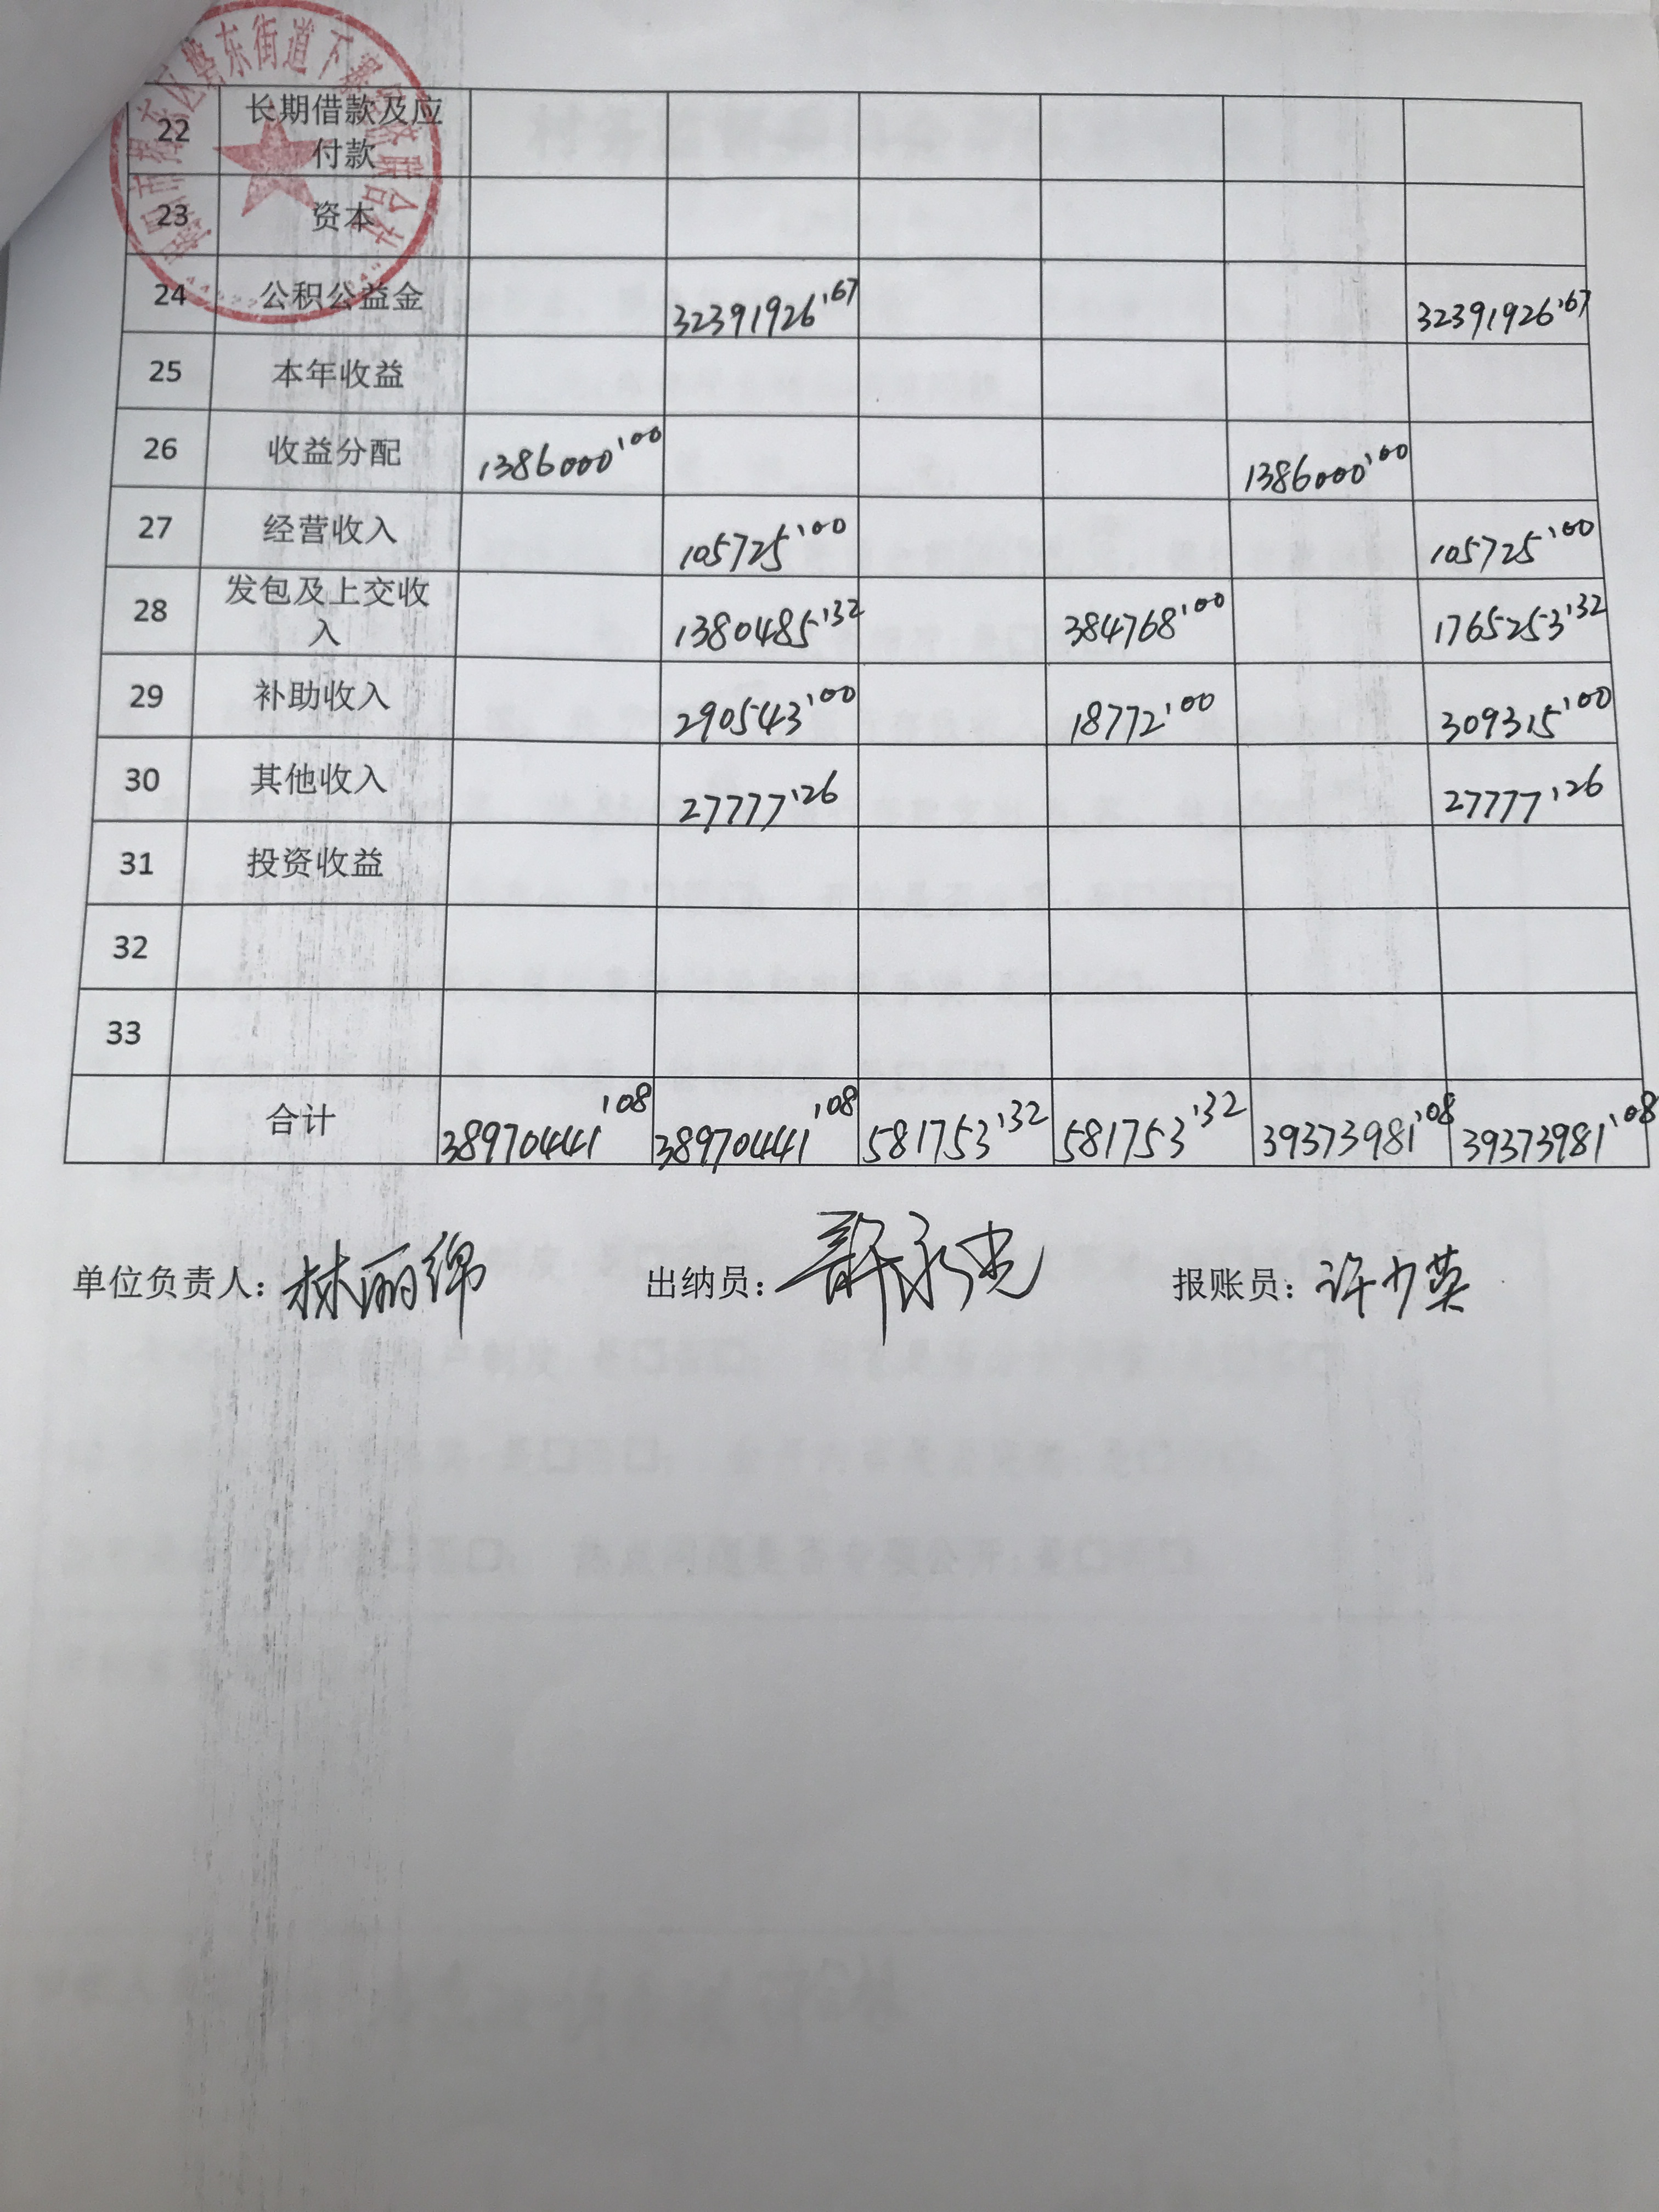 22 长期借款及应
付款
23 资本
24 公积公益金 32391926.67 32391926.67
25 本年收益
26 收益分配 1386000.00 1386000.00
27 经营收入 105725.00 105725.00
28 发包及上交收
入 1380485.32 384768.00 1765253.32
29 补助收入 290543.00 18772.00 309315.00
30 其他收入 27777.26 27777.26
31 投资收益
32
33
合计 38970441.08 38970441.08 581753.32 581753.32 39373981.08 39373981.08
单位负责人：林丽绵 出纳员：許永忠 报账员：许少英